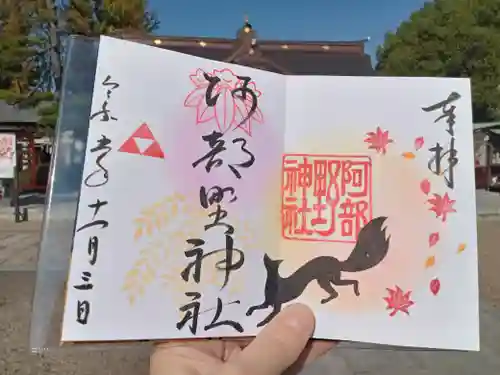 奉拝
阿部野
神社
阿部野神社
令和五年
十一月三日